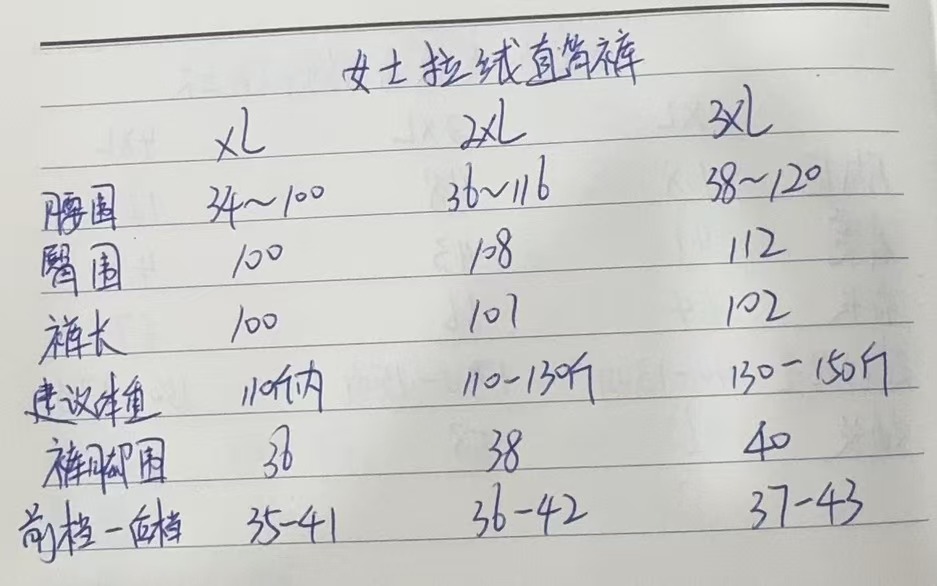 女士拉绒直筒裤
XL 2XL 3XL
腰围 34~100 36~116 38~120
臀围 100 108 112
裤长 100 101 102
建议体重 110斤内 110-130斤 130-150斤
裤脚围 36 38 40
前档一后档 35-41 36-42 37-43